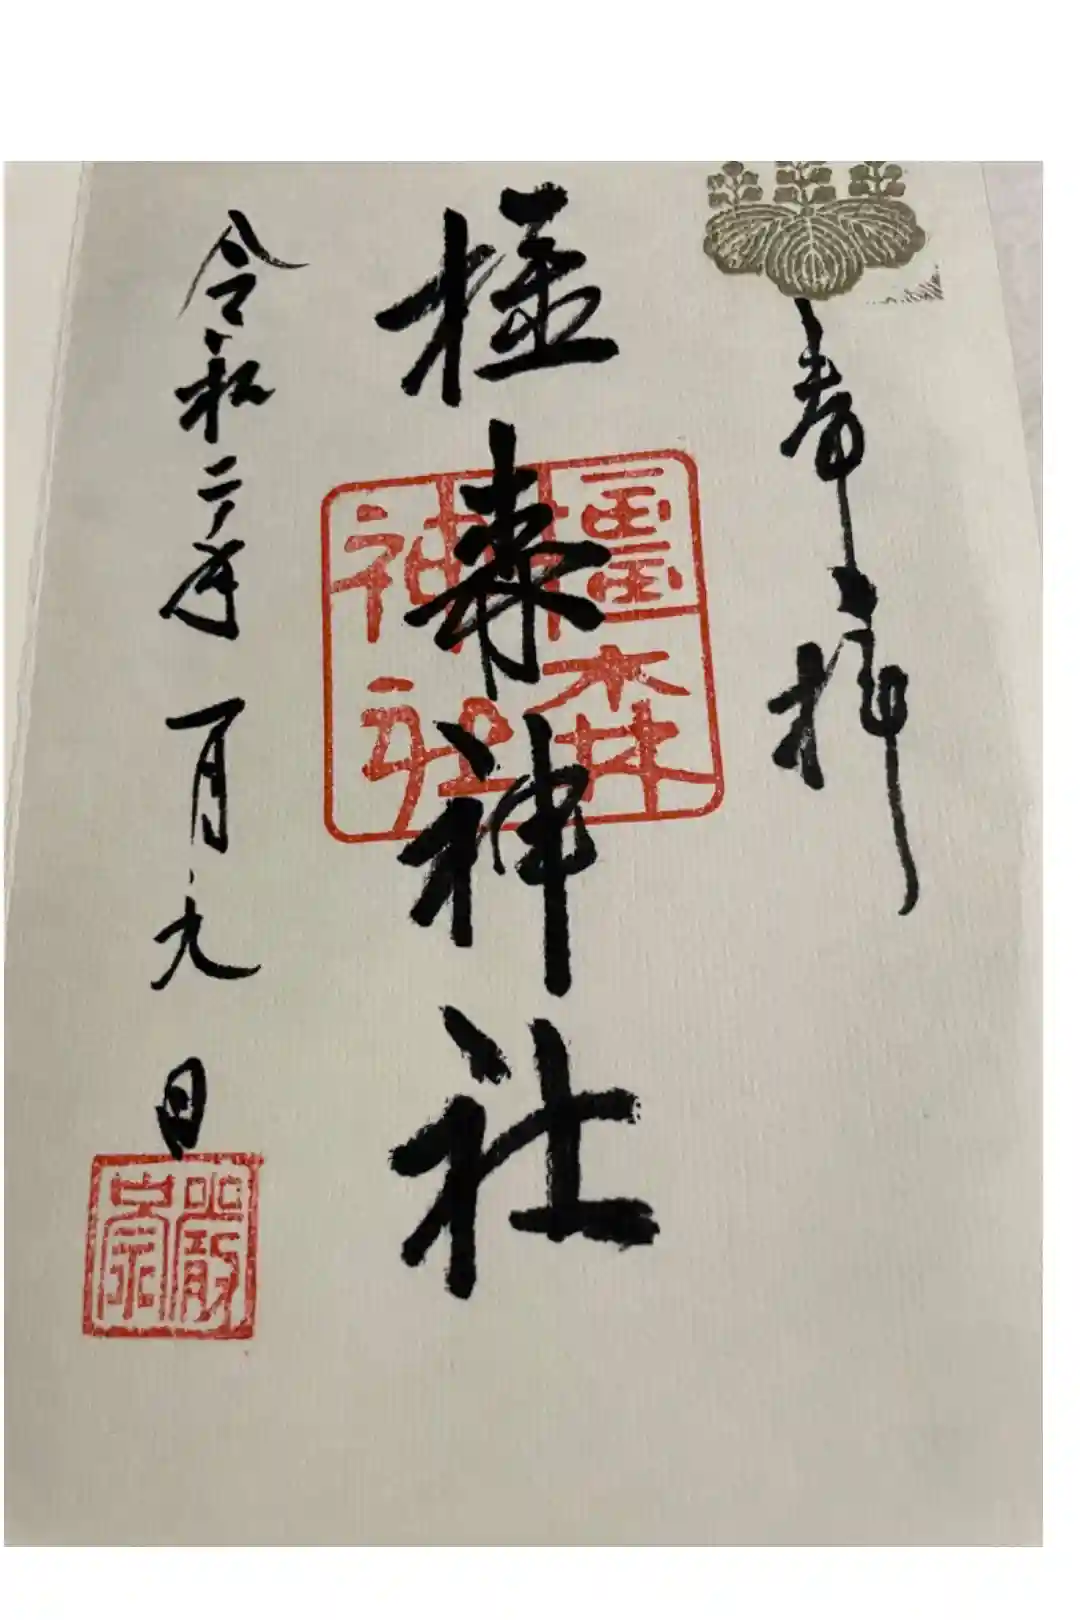 奉拝
橿森神社
橿森神社
令和二年一月九日